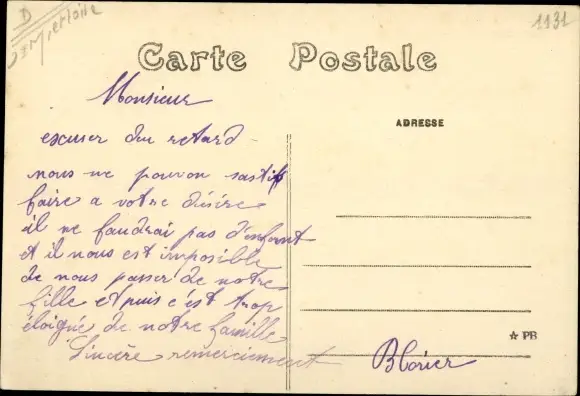 D
1131
Carte Postale
Monsieur
ADRESSE
excuser du retard -
nous ne pouvon sastif
faire a votre désire
il ne faudrai pas d'enfant
et il nous est imposible
de nous passer de notre
fille et puis c'est trop
éloigné de notre famille
Sincère remerciement
☆ PB